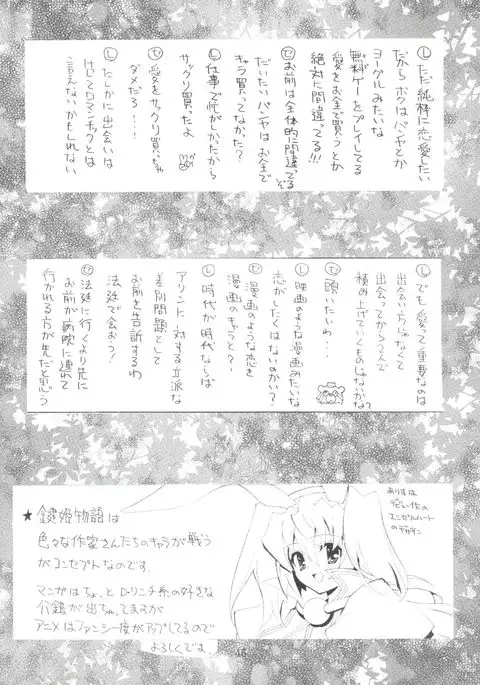 Ⓛただ純粋に恋愛したい
だからボクはパンヤとか
ヨーグルみたいな
無料ゲーをプレイしてる
愛をお金で買うとか
絶対に間違ってる!!!
お前は全体的に間違ってるぞ
だいたいパンヤはお金で
キャラ買ってなかた?
Ⓛ仕事で忙がしかったから
サックリ買ったよ
愛をサックリ買っちゃ
ダメだろ・・・
Ⓛたしかに出会いは
けしてロマンチックとは
言えないかもしれない
Ⓛでも愛って重要なのは
出会い方じゃなくて
出会ってから2人で
積み上げていくものじゃないかな?
頭いたいわ・・・
Ⓛ映画のような漫画みたいな
恋がしたくはないのかい?
漫画のような恋を
漫画のキャラと?・
Ⓛ時代が時代ならば
アリントに対する立派な
差別問題として
お前を告訴するわ
法廷で会おう!
法廷に行くより先に
お前が病院に連れて
行かれる方が先だと思う
★鍵姫物語は
色々な作家さんたちのキャラが戦う
がコンセプトなのです。
マンガはちょっとロリンチ系の好きな
介錯が出ちゃってますが
アニメはファンシー度がアップしてるので
よろしくです。
ありすは
エンゼルハート
のデザイン
45